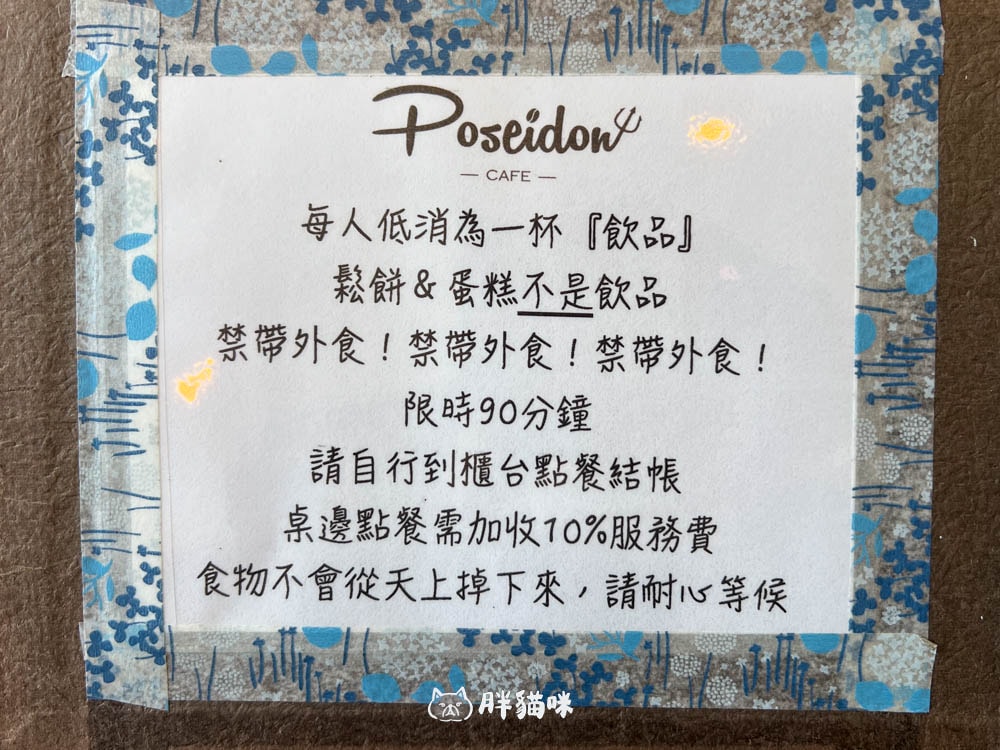 Poseidon
— CAFE —
每人低消為一杯『飲品』
鬆餅&蛋糕不是飲品
禁帶外食！禁帶外食！禁帶外食！
限時90分鐘
請自行到櫃台點餐結帳
桌邊點餐需加收10%服務費
食物不會從天上掉下來，請耐心等候
胖貓咪